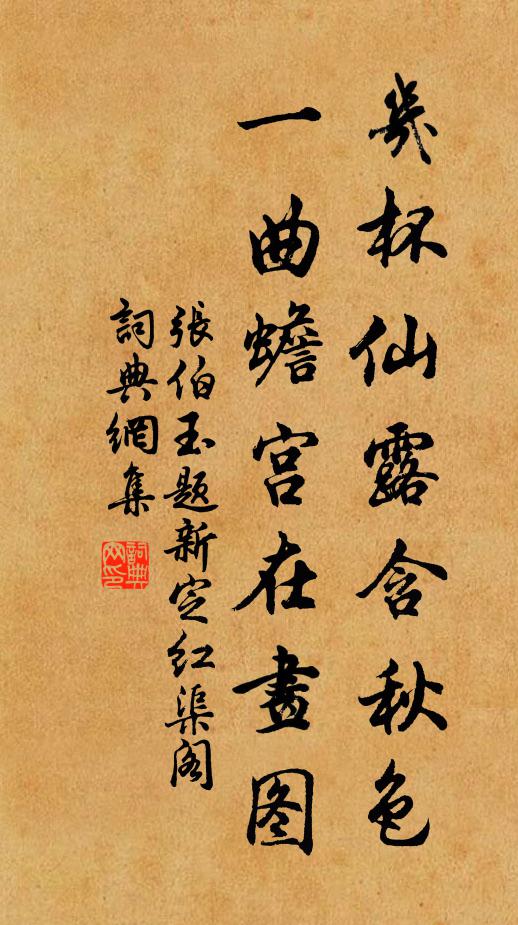 幾杯仙露含秋色
一曲蟾宫在畫图
張伯玉題新定红渠阁
詞典網集
詞典网印